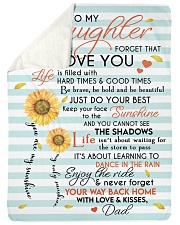 TO MY
Daughter
FORGET THAT
LOVE YOU
Life is filled with
HARD TIMES & GOOD TIMES
Be brave, be bold and be beautiful
JUST DO YOUR BEST
Keep your face to the Sunshine
AND YOU CANNOT SEE
THE SHADOWS
Life isn't about waiting for
the storm to pass
IT'S ABOUT LEARNING TO
DANCE IN THE RAIN
Enjoy the ride
& never forget
YOUR WAY BACK HOME
WITH LOVE & KISSES,
Dad
you are my sunshine
my only sunshine